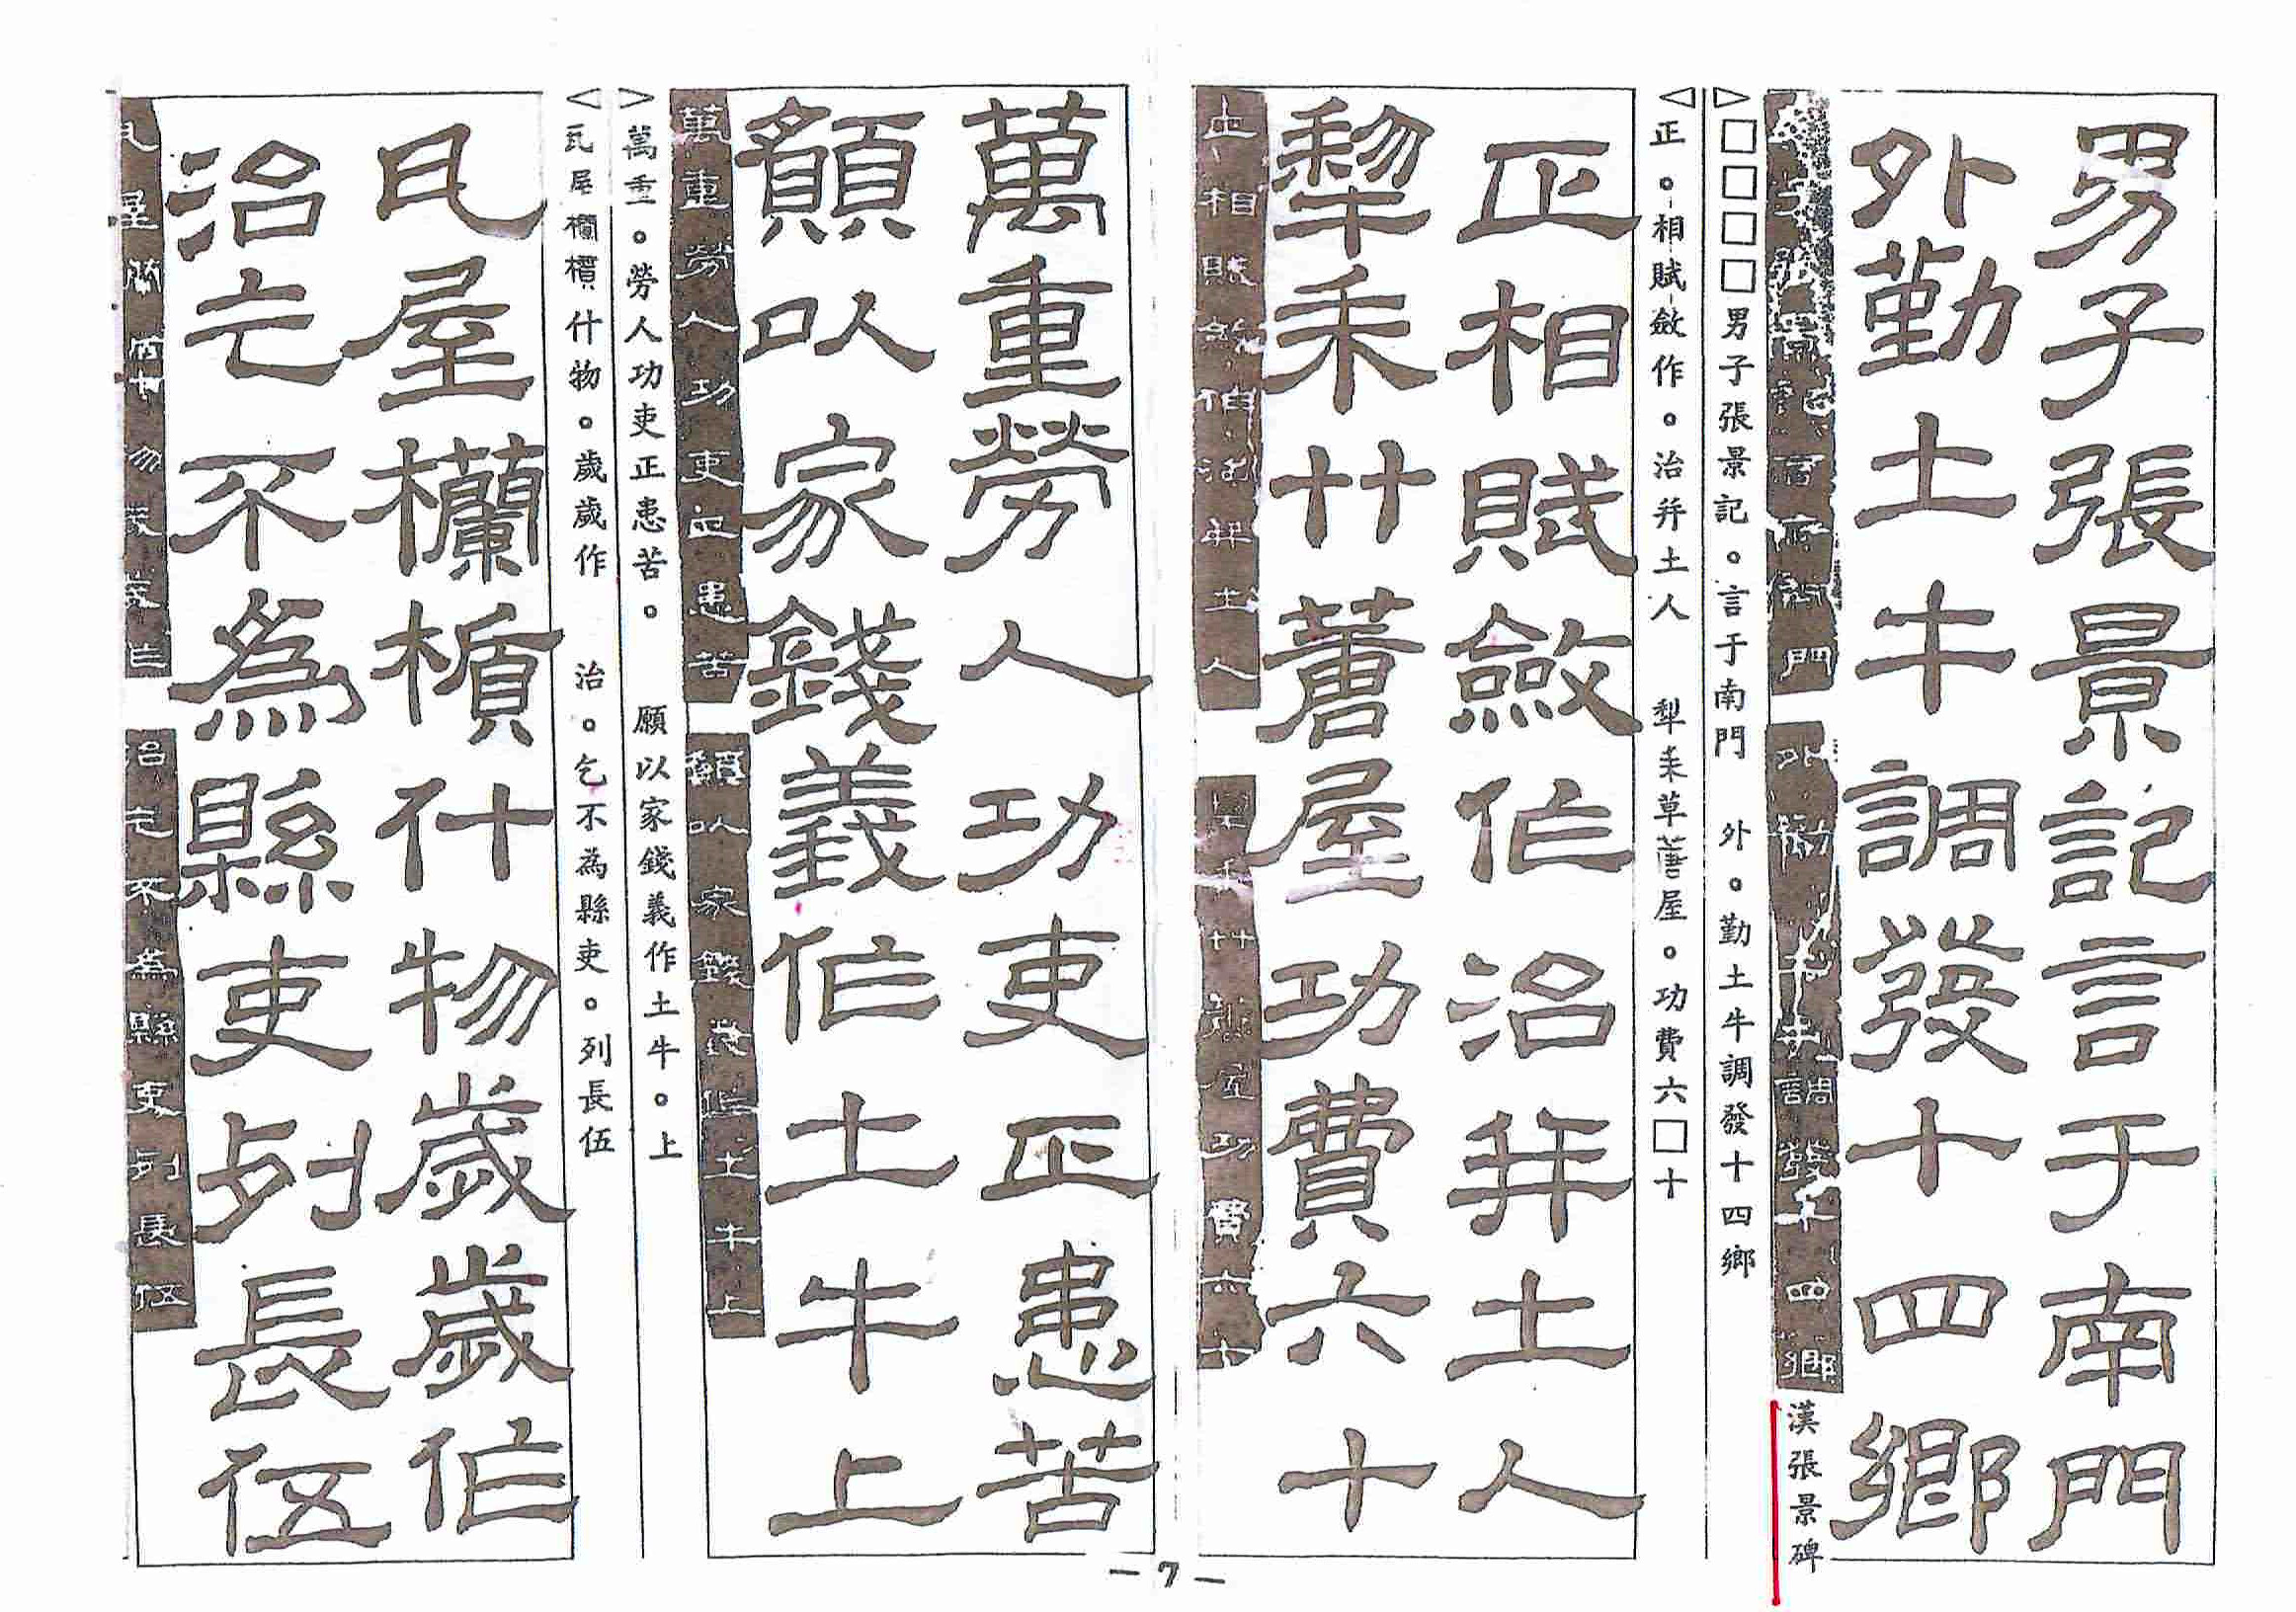 男子張景記言于南門
外勤土牛調發十四鄉
漢張景碑
▷□□□□男子張景記。言于南門　外。勤土牛調發十四鄉
◁正。相賦斂作。治并土人　犁耒草蓎屋。功費六□十
正相賦斂作治并土人
犂耒艹蓎屋功費六十
萬重勞人功吏正患苦
願以家錢義作土牛上
▷萬重。勞人功吏正患苦。　願以家錢義作土牛。上
◁瓦屋欄楯什物。歲歲作　治。乞不為縣吏。列長伍
瓦屋欄楯什物歲歲作
治乞不為縣吏列長伍
—7—